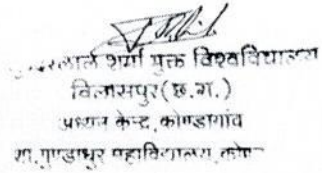 शर्मा मुक्त विश्वविद्यालय
बिलासपुर (छ.ग.)
अध्ययन केन्द्र, कोण्डागांव
शा. गुण्डाधुर महाविद्यालय,